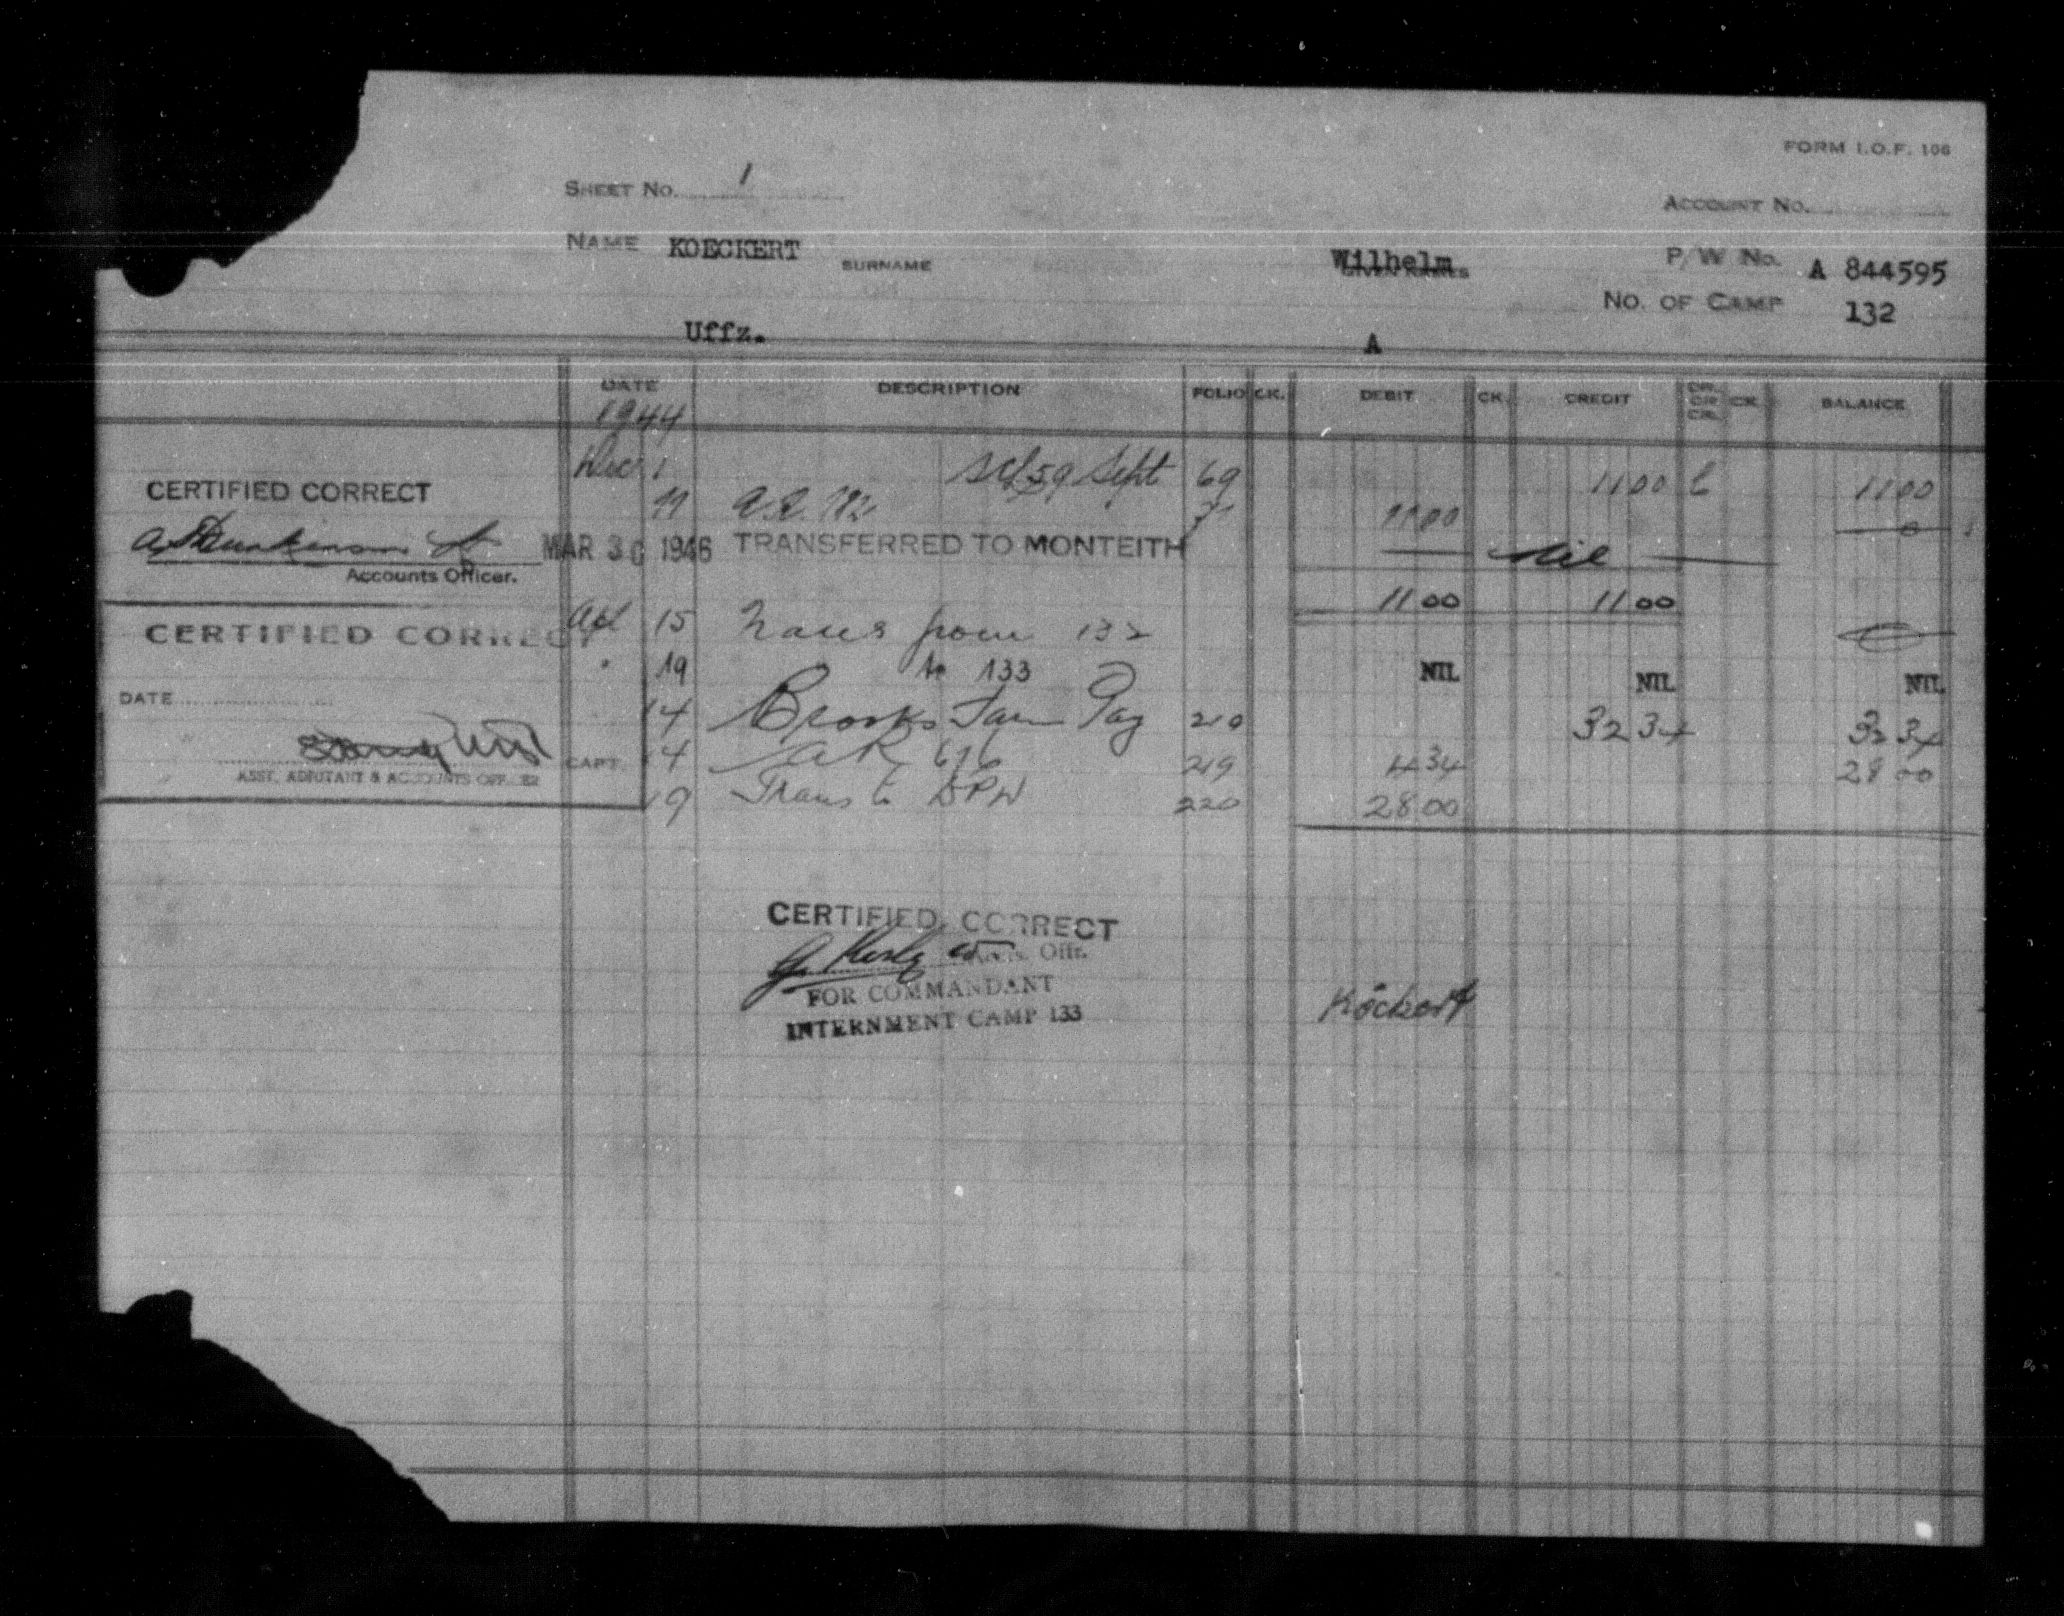 FORM I.O.F. 106
SHEET NO. 1
ACCOUNT NO.
NAME KOECKERT SURNAME Wilhelm GIVEN NAMES P/W No. A 844595
NO. OF CAMP 132
Uffz. A
DATE DESCRIPTION FOLIO CK. DEBIT CK. CREDIT DR. OR CR. CK. BALANCE
1944
Dec 1 Sept 69 11 00 C 11 00
11 00 0
CERTIFIED CORRECT
Accounts Officer.
MAR 30 1946 TRANSFERRED TO MONTEITH Nil
11 00 11 00
Apl 15 Trans from 132
CERTIFIED CORRECT
" 19 to 133 NIL NIL NIL
DATE
14 Brooks Farm Pay 210 32 34 32 34
CAPT. 14 AR 676 219 4 34 28 00
ASST. ADJUTANT & ACCOUNTS OFFICER
19 Trans to DPW 220 28 00
CERTIFIED CORRECT
Offr.
FOR COMMANDANT
INTERNMENT CAMP 133
Köckert